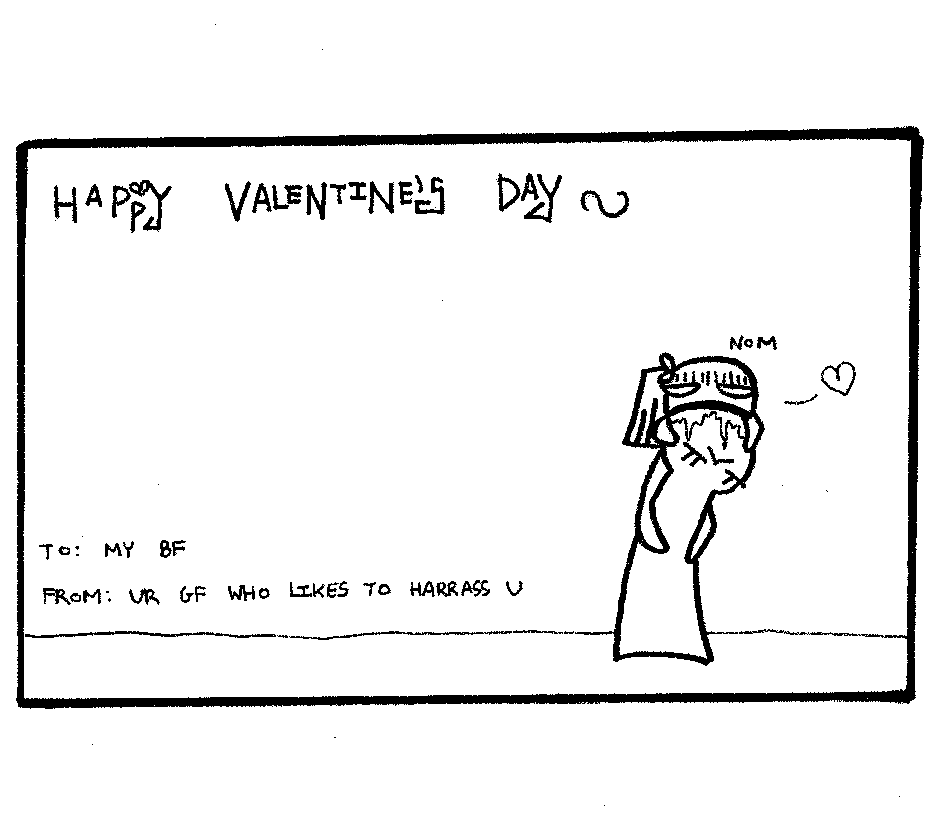 HAPPY VALENTINE'S DAY ~
NOM
TO: MY BF
FROM: UR GF WHO LIKES TO HARRASS U